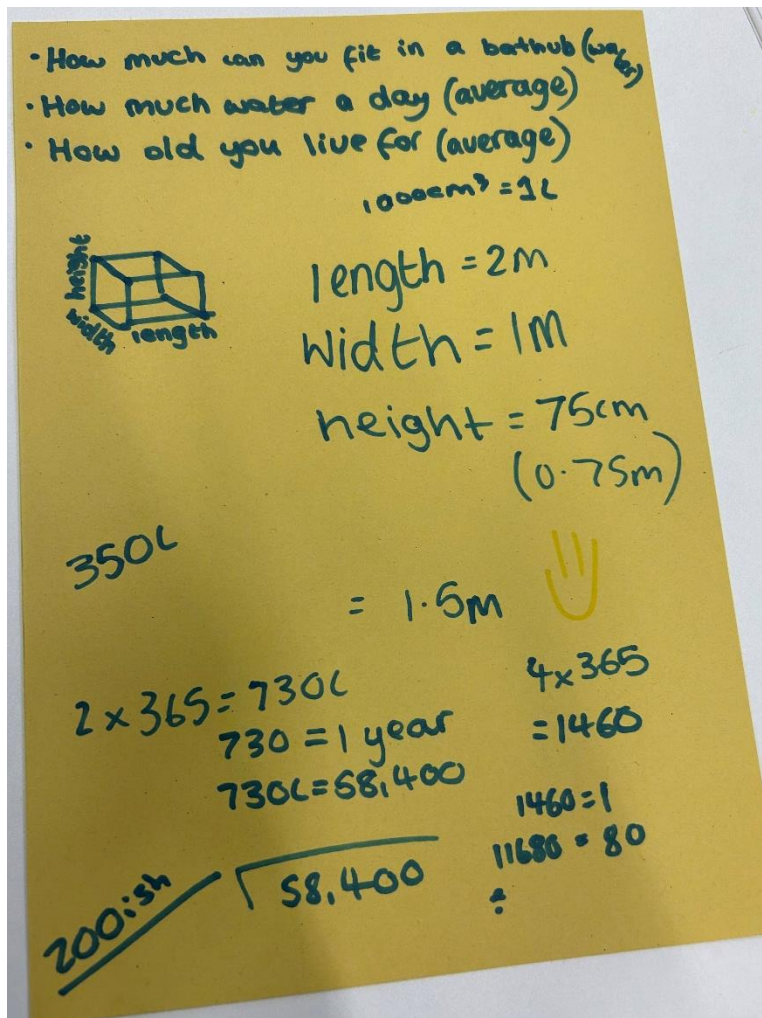 • How much can you fit in a bathub (water)
• How much water a day (average)
• How old you live for (average)
1000cm³ = 1L
height
width
length
length = 2m
width = 1m
height = 75cm
(0.75m)
350L
= 1.5m
2 x 365 = 730L
730 = 1 year
730L = 58,400
4 x 365
= 1460
1460 = 1
11680 = 80
÷
58,400
200ish